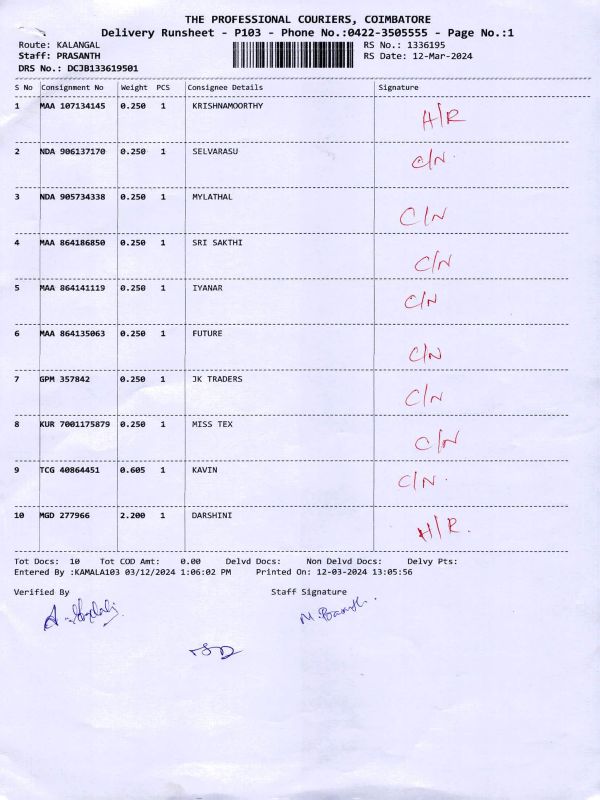 THE PROFESSIONAL COURIERS, COIMBATORE
Delivery Runsheet - P103 - Phone No.:0422-3505555 - Page No.:1
Route: KALANGAL RS No.: 1336195
Staff: PRASANTH RS Date: 12-Mar-2024
DRS No.: DCJB133619501
S No Consignment No Weight PCS Consignee Details Signature
1 MAA 107134145 0.250 1 KRISHNAMOORTHY H/R
2 NDA 906137170 0.250 1 SELVARASU C/N
3 NDA 905734338 0.250 1 MYLATHAL C/N
4 MAA 864186850 0.250 1 SRI SAKTHI C/N
5 MAA 864141119 0.250 1 IYANAR C/N
6 MAA 864135063 0.250 1 FUTURE C/N
7 GPM 357842 0.250 1 JK TRADERS C/N
8 KUR 7001175879 0.250 1 MISS TEX C/N
9 TCG 40864451 0.605 1 KAVIN C/N
10 MGD 277966 2.200 1 DARSHINI H/R.
Tot Docs: 10 Tot COD Amt: 0.00 Delvd Docs: Non Delvd Docs: Delvy Pts:
Entered By :KAMALA103 03/12/2024 1:06:02 PM Printed On: 12-03-2024 13:05:56
Verified By Staff Signature